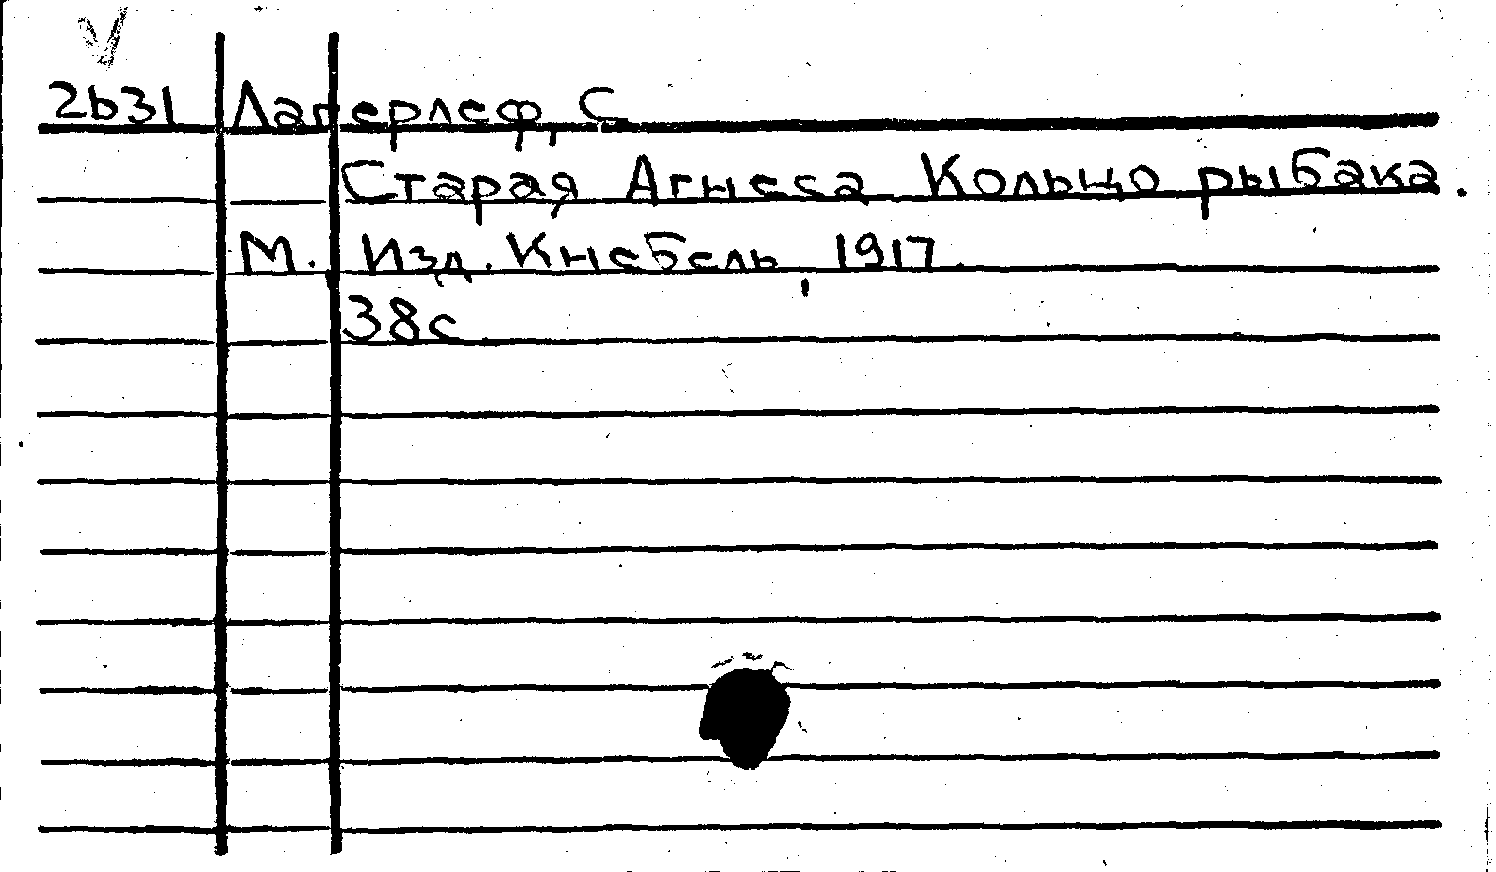 2b31 Лагерлеф, С
Старая Агнеса Кольцо рыбака.
М. Изд. Кнебель, 1917.
38с